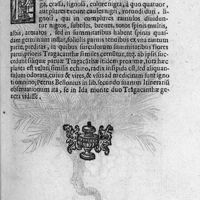 ga, crassa, lignosa, colore nigra, à quo quatuor,
aut plures exeunt caules nigri, rotundi duri, li-
gnosi, qui in complures ramulos diuidun-
tur nigros, subtiles, breues, totos spinis multis,
albis, armatos, sed in summitatibus habent spinis quas-
dam geminant instar, foliolis paruis tenuibus ex vna tantum
parte, præditæ, in quibus surculorum summitatibus flores
paruiores Tragacanthæ similes cernuntur, ex ab ipsis suc-
cedunt siliquæ paruæ Tragacanthæ itidem proxime, tota hæc
planta est visui similis echino, radix insipida est, sed aliquan-
tulum odorata, cuius & vires, & vsus ad medicinam sunt igno
ti omnino, Petrus Bellonius in lib. secundo suarum Itinerariū
obseruationum ait, se in Ida monte duo Tragacanthæ ge-
nera vidisse.